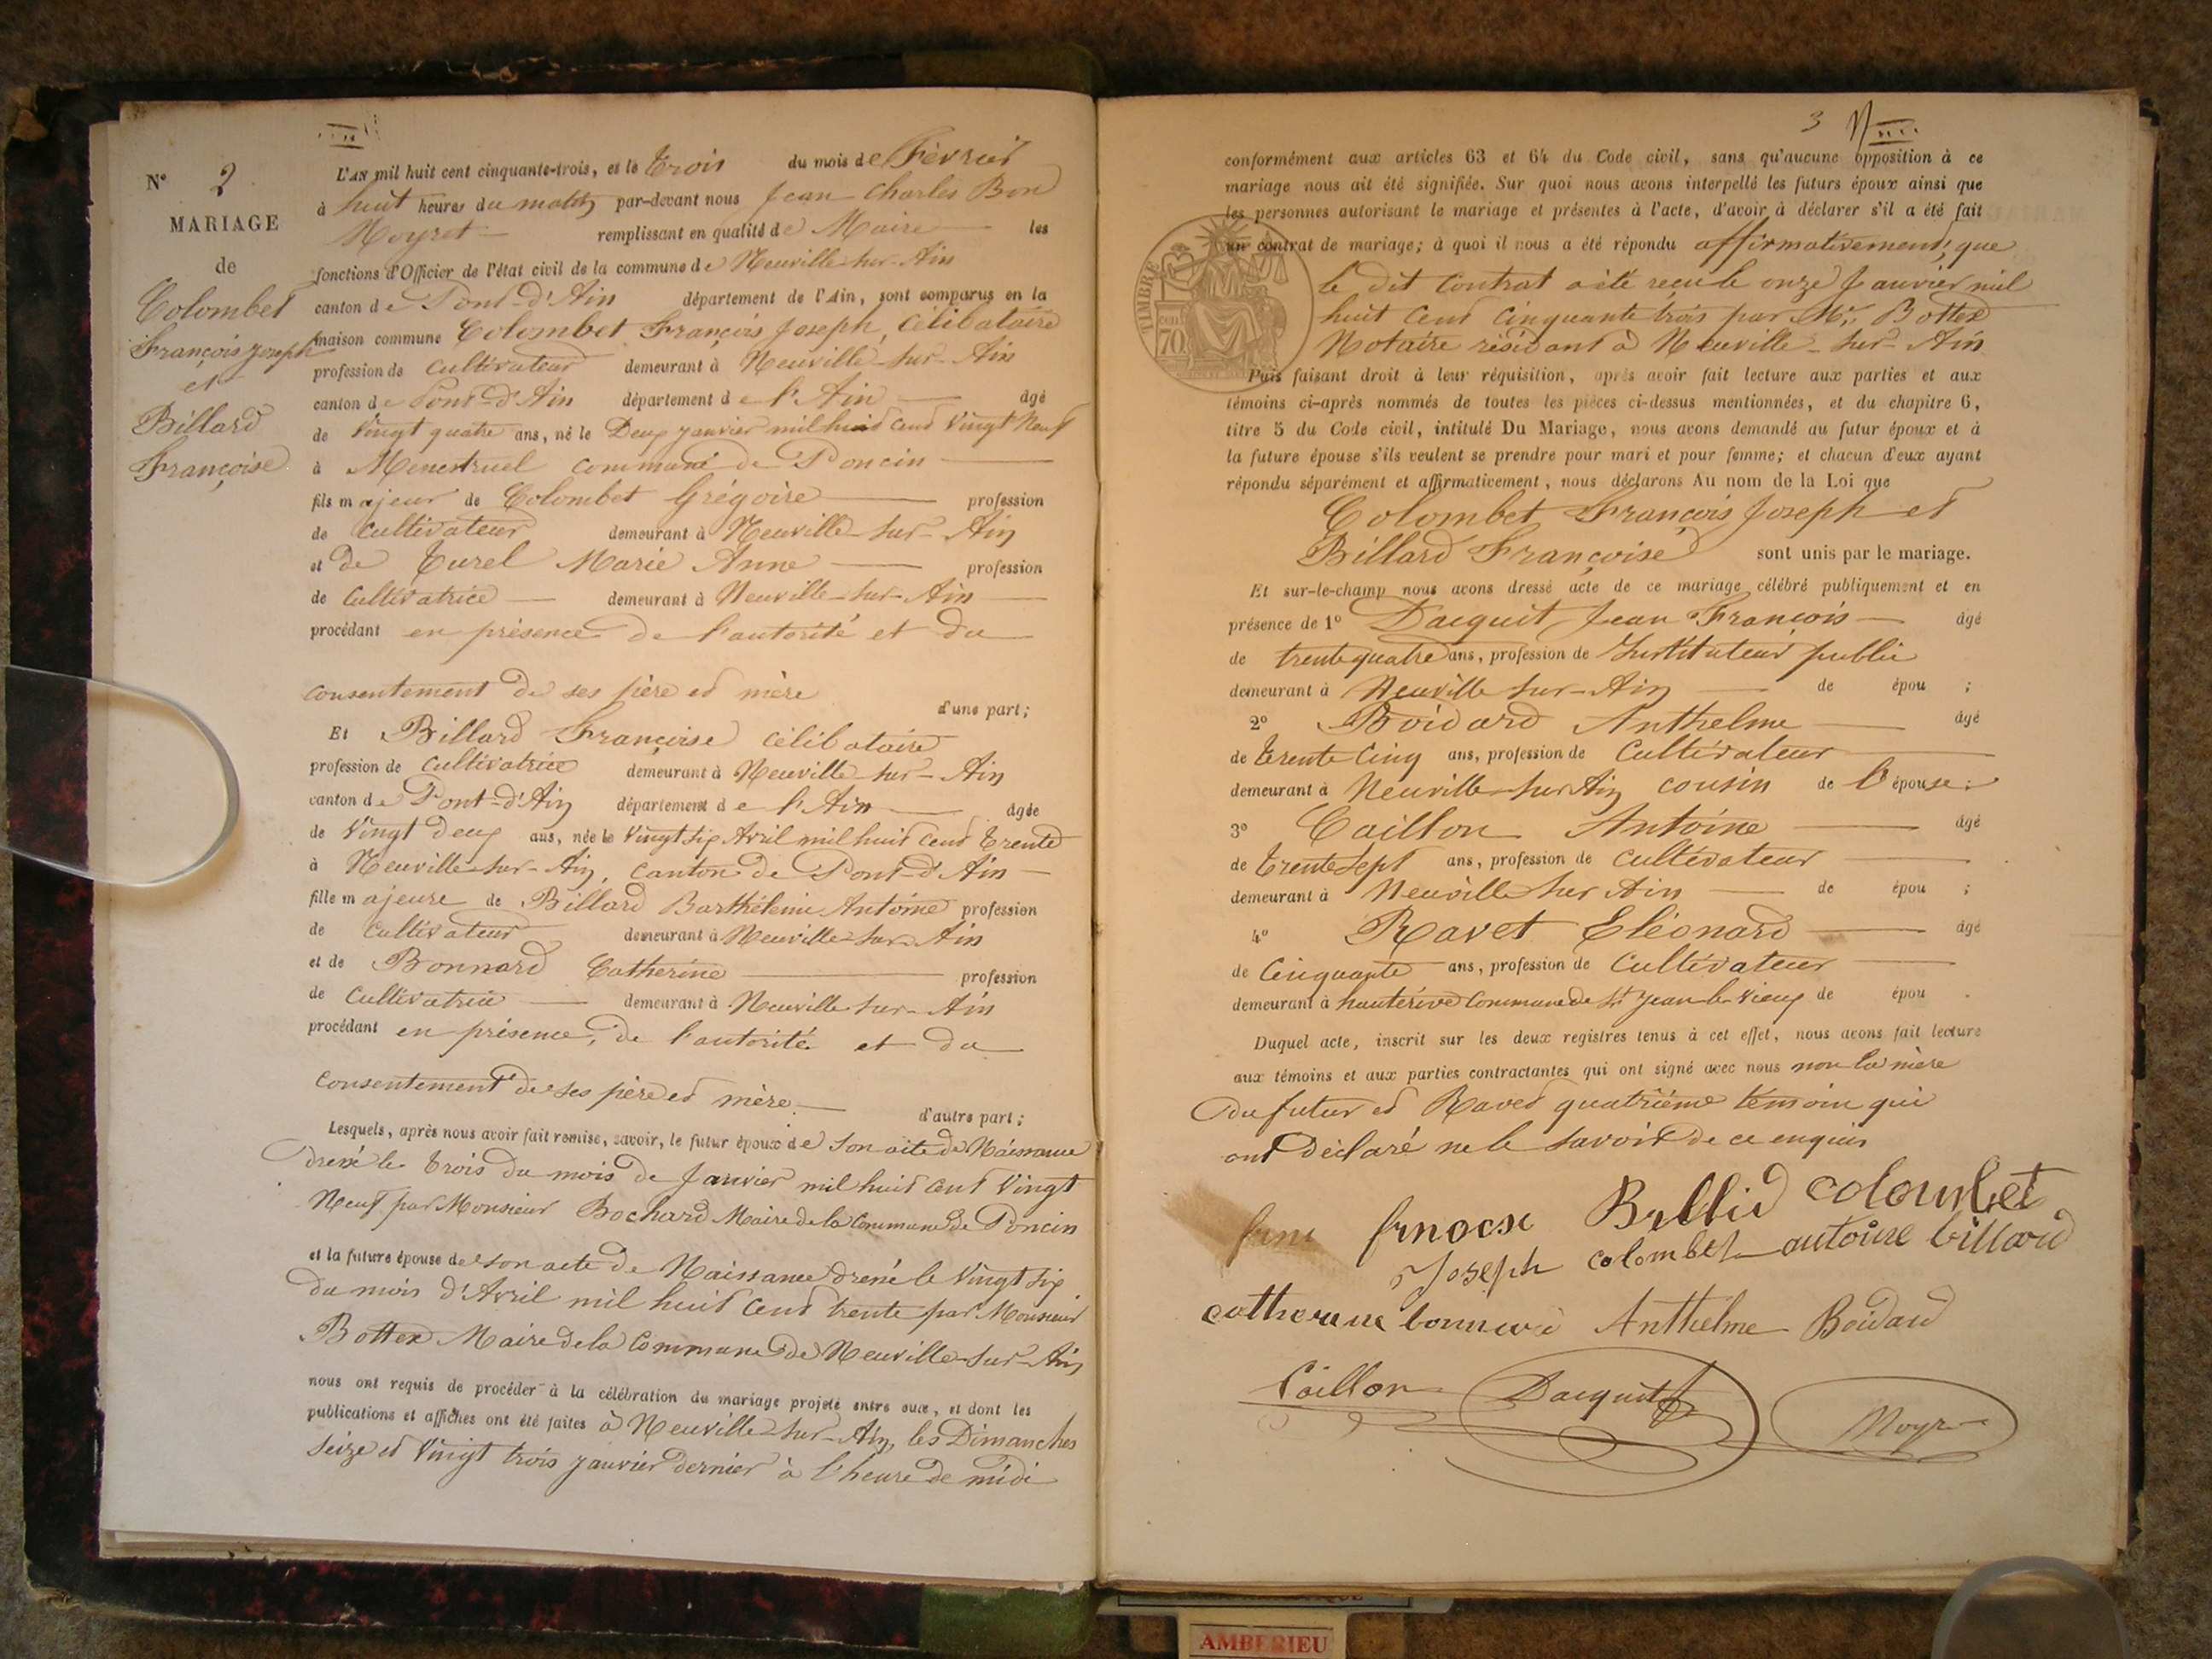 N° 2
MARIAGE
de
Colombet
François Joseph
et
Billard
Françoise
L'AN mil huit cent cinquante-trois, et le trois du mois de Février
à huit heures du matin par-devant nous Jean Charles Bon
Moyret remplissant en qualité de Maire les
fonctions d'Officier de l'état civil de la commune de Neuville-sur-Ain
canton de Pont-d'Ain département de l'Ain, sont comparus en la
maison commune Colombet François Joseph, célibataire
profession de cultivateur demeurant à Neuville-sur-Ain
canton de Pont-d'Ain département de l'Ain âgé
de vingt quatre ans, né le Deux janvier mil huit cent vingt neuf
à Menestruel commune de Poncin
fils majeur de Colombet Grégoire profession
de cultivateur demeurant à Neuville-sur-Ain
et de Turel Marie Anne profession
de cultivatrice demeurant à Neuville-sur-Ain
procédant en présence de l'autorité et du
consentement de ses père et mère
d'une part;
Et Billard Françoise célibataire
profession de cultivatrice demeurant à Neuville-sur-Ain
canton de Pont-d'Ain département de l'Ain âgée
de vingt deux ans, née le vingt six Avril mil huit cent trente
à Neuville-sur-Ain, canton de Pont-d'Ain
fille majeure de Billard Barthélemi Antoine profession
de cultivateur demeurant à Neuville-sur-Ain
et de Bonnard Catherine profession
de cultivatrice demeurant à Neuville-sur-Ain
procédant en présence, de l'autorité et du
consentement de ses père et mère
d'autre part;
Lesquels, après nous avoir fait remise, savoir, le futur époux de son acte de Naissance
dressé le trois du mois de Janvier mil huit cent vingt
neuf par Monsieur Bochard Maire de la Commune de Poncin
et la future épouse de son acte de Naissance dressé le vingt six
du mois d'Avril mil huit cent trente par Monsieur
Bottex Maire de la Commune de Neuville-sur-Ain
nous ont requis de procéder à la célébration du mariage projeté entre eux, et dont les
publications et affiches ont été faites à Neuville-sur-Ain, les Dimanches
seize et vingt trois janvier dernier à l'heure de midi
3
conformément aux articles 63 et 64 du Code civil, sans qu'aucune opposition à ce
mariage nous ait été signifiée. Sur quoi nous avons interpellé les futurs époux ainsi que
les personnes autorisant le mariage et présentes à l'acte, d'avoir à déclarer s'il a été fait
un contrat de mariage; à quoi il nous a été répondu affirmativement, que
le dit contrat a été reçu le onze Janvier mil
huit cent cinquante trois par Mr. Bottex
Notaire résidant à Neuville-sur-Ain
TIMBRE
70
Puis faisant droit à leur réquisition, après avoir fait lecture aux parties et aux
témoins ci-après nommés de toutes les pièces ci-dessus mentionnées, et du chapitre 6,
titre 5 du Code civil, intitulé Du Mariage, nous avons demandé au futur époux et à
la future épouse s'ils veulent se prendre pour mari et pour femme; et chacun d'eux ayant
répondu séparément et affirmativement, nous déclarons Au nom de la Loi que
Colombet François Joseph et
Billard Françoise sont unis par le mariage.
Et sur-le-champ nous avons dressé acte de ce mariage célébré publiquement et en
présence de 1° Dacquit Jean François âgé
de trente quatre ans, profession de Instituteur public
demeurant à Neuville sur-Ain de épou ;
2° Boidard Anthelme âgé
de trente cinq ans, profession de cultivateur
demeurant à Neuville sur Ain cousin de l'épouse;
3° Caillon Antoine âgé
de trente sept ans, profession de cultivateur
demeurant à Neuville sur Ain de épou ;
4° Ravet Eléonard âgé
de cinquante ans, profession de cultivateur
demeurant à hauterive commune de St Jean le vieux de épou .
Duquel acte, inscrit sur les deux registres tenus à cet effet, nous avons fait lecture
aux témoins et aux parties contractantes qui ont signé avec nous non la mère
du futur et Ravet quatrième témoin qui
ont déclaré ne le savoir de ce enquis
frnocse Billid colombet
Joseph colombet antoine billard
catherine bonnard Anthelme Boidard
Caillon Dacquit Moyret
AMBERIEU